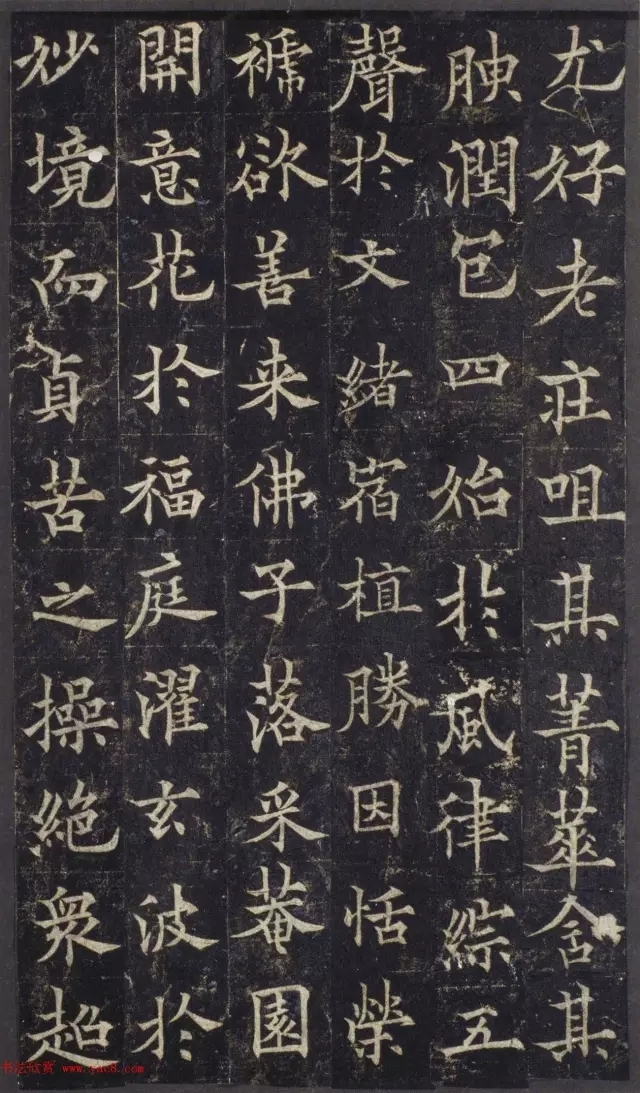 尤好老庄咀其菁華含其
腴潤包四始於風律綜五
聲於文緒宿植勝因恬榮
褫欲善来佛子落采菴園
開意花於福庭濯玄波於
妙境而貞苦之操絶衆超
书法欣赏 www.yac8.com